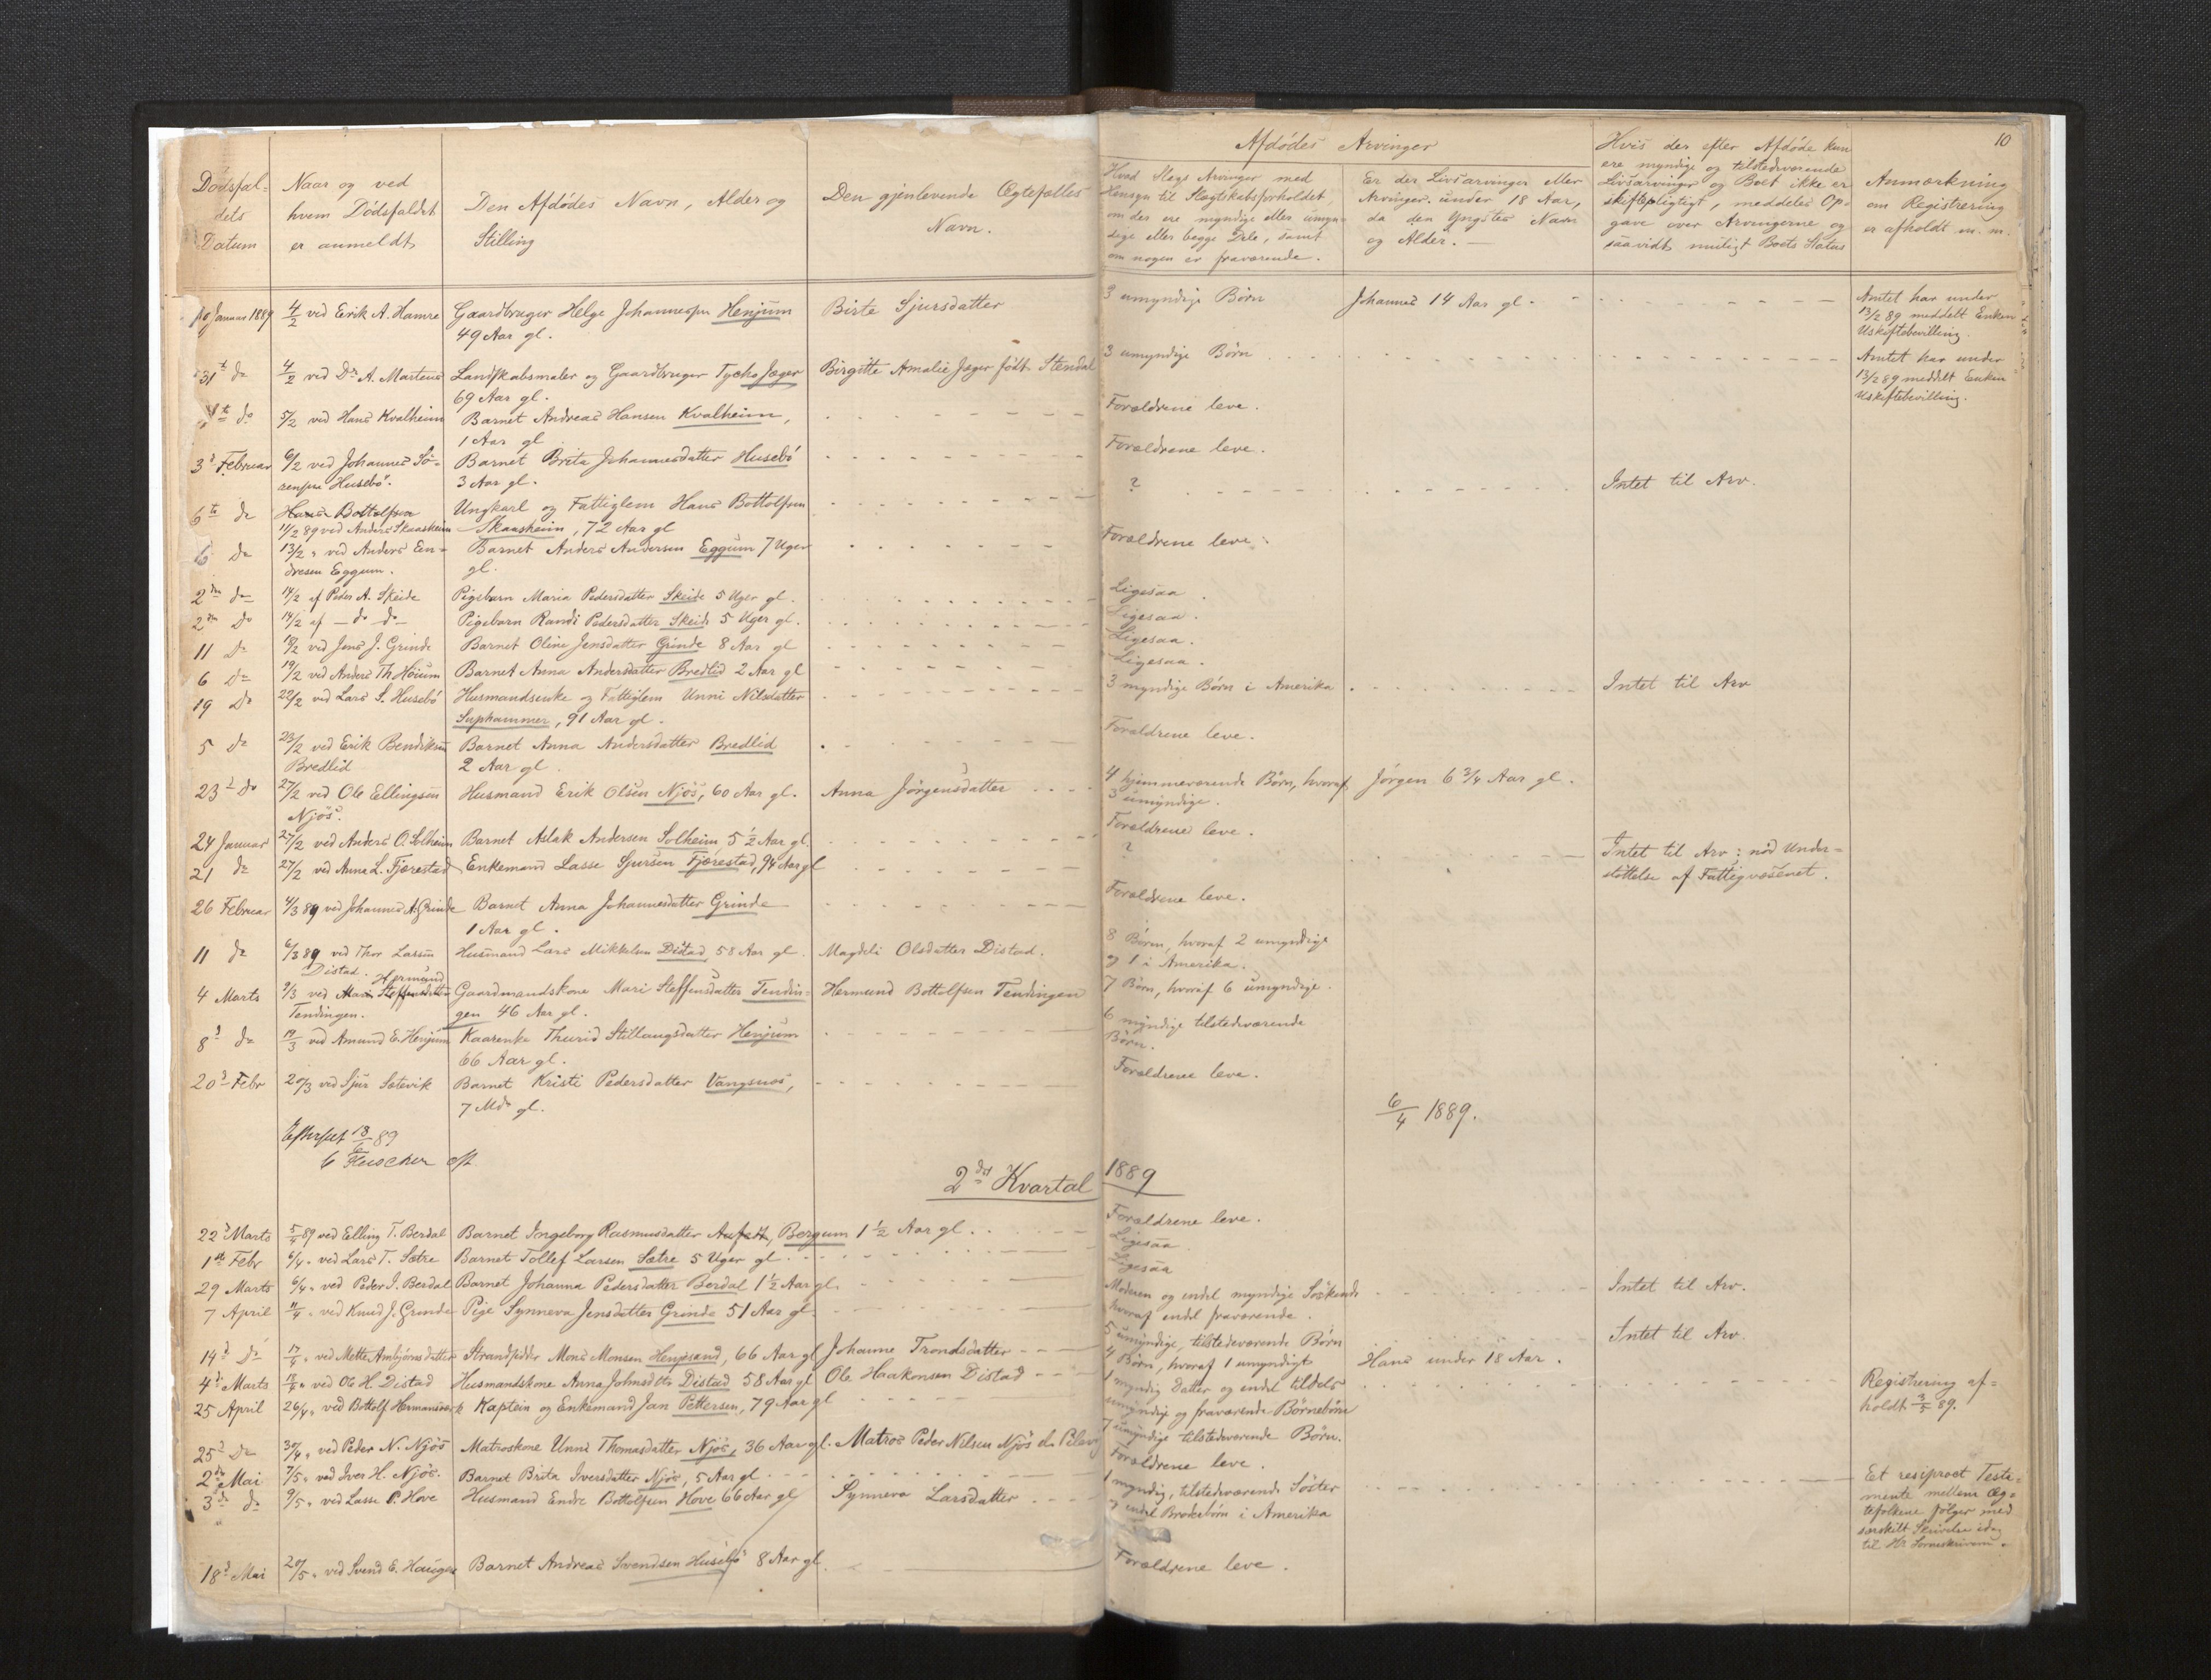 10
Afdödes Arvinger
Dödsfal-
dets
Datum
Naar og ved
hvem Dödsfaldet
er anmeldt
Den Afdödes Navn, Alder og
Stilling
Den gjenlevende Ægtefælles
Navn.
Hvad Slegs Arvinger med
Hensyn til Slægtskabsforholdet,
om der ere myndige eller umyn-
dige eller begge Dele, samt
om nogen er fraværende.
Er der Livsarvinger eller
Arvinger under 18 Aar,
da den Yngstes Navn
og Alder. —
Hvis der efter Afdöde kun
ere myndige og tilstedeværende
Livsarvinger og Boet ikke er
skiftepligtigt, meddeles Op-
gave over Arvingerne og
saavidt muligt Boets Status
Anmærkning
om Registrering
er afholdt m. m.
10 Januar 1889 4/2 ved Erik A. Hamre Gaardbruger Helge Johannessen Henjum Birte Sjursdatter 3 umyndige Börn Johannes 14 Aar gl. Amtet har under
49 Aar gl. 13/2 89 meddelt Enken
Uskiftebevilling.
31te do 4/2 ved Dr A. Martens Landskabsmaler og Gaardbruger Tycho Jæger Birgitte Amalie Jæger födt Stendal 3 umyndige Börn Amtet har under
69 Aar gl. 13/2 89 meddelt Enken
Uskiftebevilling.
do 5/2 ved Hans Kvalheim Barnet Andreas Hansen Kvalheim, Forældrene leve.
1 Aar gl
3d Februar 6/2 ved Johannes Sö- Barnet Brita Johannesdatter Husebö Forældrene leve.
rensen Husebö. 3 Aar gl.
6te do Hans Bottolfsen Ungkarl og Fattiglem Hans Bottolfsen ? Intet til Arv.
11/2 89 ved Anders Skaasheim Skaasheim, 72 Aar gl
6 do 13/2 " ved Anders En- Barnet Anders Andersen Eggum 7 Uger Forældrene leve.
dresen Eggum. gl.
2den do 14/2 af Peder A. Skeide Pigebarn Maria Pedersdatter Skeide 5 Uger gl. Ligesaa.
2den do 14/2 af — do do — Pigebarn Randi Pedersdatter Skeide 5 Uger gl. Ligesaa.
11 do 18/2 ved Jens J. Grinde Barnet Oline Jensdatter Grinde 8 Aar gl Ligesaa.
6 do 19/2 ved Anders Th Höium Barnet Anna Andersdatter Bredlid 2 Aar gl Ligesaa.
19 do 22/2 ved Lars S. Husebö Husmandsenke og Fattiglem Unni Nilsdatter 3 myndige Börn i Amerika Intet til Arv
Suphammer, 91 Aar gl.
5 do 23/2 ved Erik Bendiksen Barnet Anna Andersdatter Bredlid Forældrene leve.
Bredlid 2 Aar gl.
23d do 27/2 ved Ole Ellingsen Husmand Erik Olsen Njös, 60 Aar gl. Anna Jörgensdatter 4 hjemmeværende Börn, hvoraf Jörgen 6 3/4 Aar gl.
Njös. 3 umyndige.
24 Januar 27/2 ved Anders O. Solheim Barnet Aslak Andersen Solheim 5 1/2 Aar gl. Forældrene leve.
21 do 27/2 ved Anna L. Fjærestad Enkemand Lasse Sjursen Fjærestad, 94 Aar gl ? Intet til Arv; nöd Under-
stöttelse af Fattigvæsenet.
26 Februar 4/3 89 ved Johannes A. Grinde Barnet Anna Johannesdatter Grinde Forældrene leve.
1 Aar gl.
11 do 6/3 89 ved Thor Larsen Husmand Lars Mikkelsen Distad 58 Aar gl. Magdeli Olsdatter Distad. 8 Börn, hvoraf 2 umyndige
Distad. og 1 i Amerika.
Hermund
4 Marts 9/3 ved Mari Steffensdatter Gaardmandskone Mari Steffensdatter Tendin- Hermund Bottolfsen Tendingen 7 Börn, hvoraf 6 umyndige.
Tendingen. gen 46 Aar gl.
8d do 19/3 ved Amund E. Henjum Kaarenke Thurid Stillaugsdatter Henjum 6 myndige tilstedeværende
66 Aar gl. Börn.
20d Febr 20/3 ved Sjur Sætevik Barnet Kristi Pedersdatter Vangsnes, Forældrene leve.
7 Mdr gl.
6/4 1889.
Efterset 13/6 89
2det Kvartal 1889
22d Marts 5/4 89 ved Elling T. Berdal Barnet Ingeborg Rasmusdatter Bergum 1 1/2 Aar gl. Forældrene leve.
1ste Febr 6/4 " ved Lars T. Sætre Barnet Tollef Larsen Sætre 5 Uger gl. Ligesaa
29 Marts 6/4 " ved Peder J. Berdal Barnet Johanna Pedersdatter Berdal 1 1/2 Aar gl. Ligesaa
7 April 11/4 " ved Knud J. Grinde Pige Synneva Jensdatter Grinde 51 Aar gl. Moderen og endel myndige Söskende Intet til Arv.
hvoraf endel fraværende.
14d do 17/4 " ved Mette Ambjörnsdatter Strandsidder Mons Monsen Henjesand, 66 Aar gl Johanne Trondsdatter 5 umyndige, tilstedeværende Börn Intet til Arv.
4d Marts 18/4 " ved Ole H. Distad Husmandskone Anna Johnsdttr Distad 58 Aar gl Ole Haakonsen Distad 4 Börn, hvoraf 1 umyndigt Hans under 18 Aar.
25 April 26/4 " ved Bottolf Hermansverk Kaptein og Enkemand Jan Pettersen, 79 Aar gl 1 myndig Datter og endel tildels Registrering af-
umyndige og fraværende Börnebörn holdt 3/5 89.
25d do 30/4 " ved Peder N. Njös Matroskone Unni Thomasdatter Njös, 36 Aar gl. Matros Peder Nilsen Njös 7 umyndige tilstedeværende Börn.
2den Mai 7/5 " ved Iver H. Njös. Barnet Brita Iversdatter Njös, 5 Aar gl. Forældrene leve.
3die do 9/5 " ved Lasse P. Hove Husmand Endre Bottolfsen Hove 66 Aar gl Synneva Larsdatter 1 myndig, tilstedeværende Söster Et resiproct Testa-
og endel Broderbörn i Amerika mente mellem Æg-
tefolkene fölger med
særskilt Skrivelse idag
til Hr Sorenskriveren.
18d Mai 20/5 " ved Svend E. Hauger Barnet Andreas Svendsen Husebö 8 Aar gl. Forældrene leve.